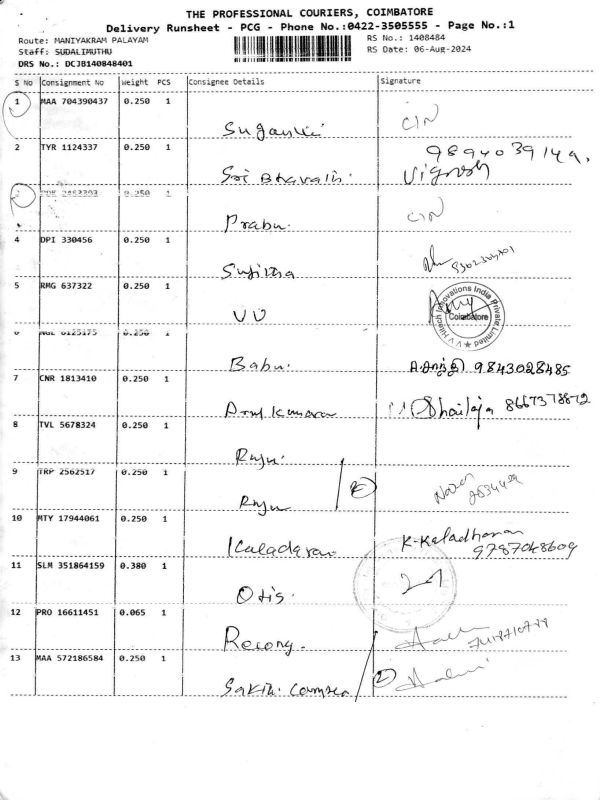 THE PROFESSIONAL COURIERS, COIMBATORE
Delivery Runsheet - PCG - Phone No.:0422-3505555 - Page No.:1
Route: MANIYAKRAM PALAYAM
RS No.: 1408484
Staff: SUDALIMUTHU
RS Date: 06-Aug-2024
DRS No.: DCJB140848401
S No Consignment No Weight PCS Consignee Details Signature
1 MAA 704390437 0.250 1
CIN
2 TYR 1124337 0.250 1
9894039149.
Sri Bharath. Vignesh
0.250 1
Prabu. CIN
4 DPI 330456 0.250 1
Sujitha
5 RMG 637322 0.250 1
VV
V V Hitech Innovations India Private Limited Coimbatore
0.250 1
Babu. 9843028485
7 CNR 1813410 0.250 1
Arul Kumaran Shailaja 8667378872
8 TVL 5678324 0.250 1
Raju.
9 TRP 2562517 0.250 1
Raju 2
10 MTY 17944061 0.250 1
Kaladaran K-Kaladharan
9787048609
11 SLM 351864159 0.380 1
Otis.
12 PRO 16611451 0.065 1
13 MAA 572186584 0.250 1
2